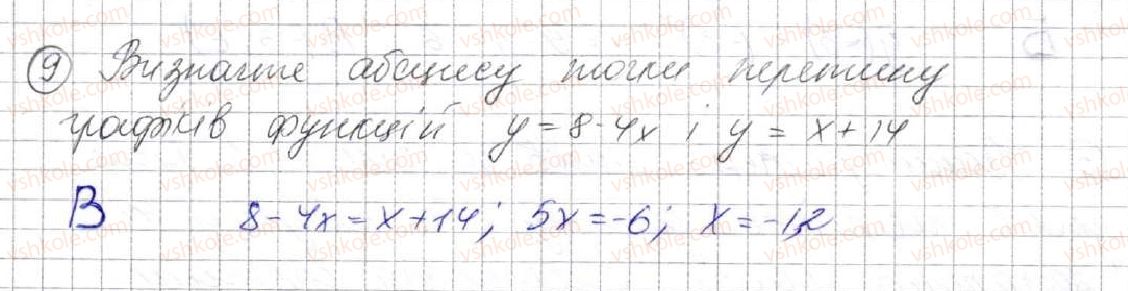 9 Визначте абсцису точки перетину
графіків функцій y = 8 - 4x і y = x + 14
В 8 - 4x = x + 14; 5x = -6; x = -1,2